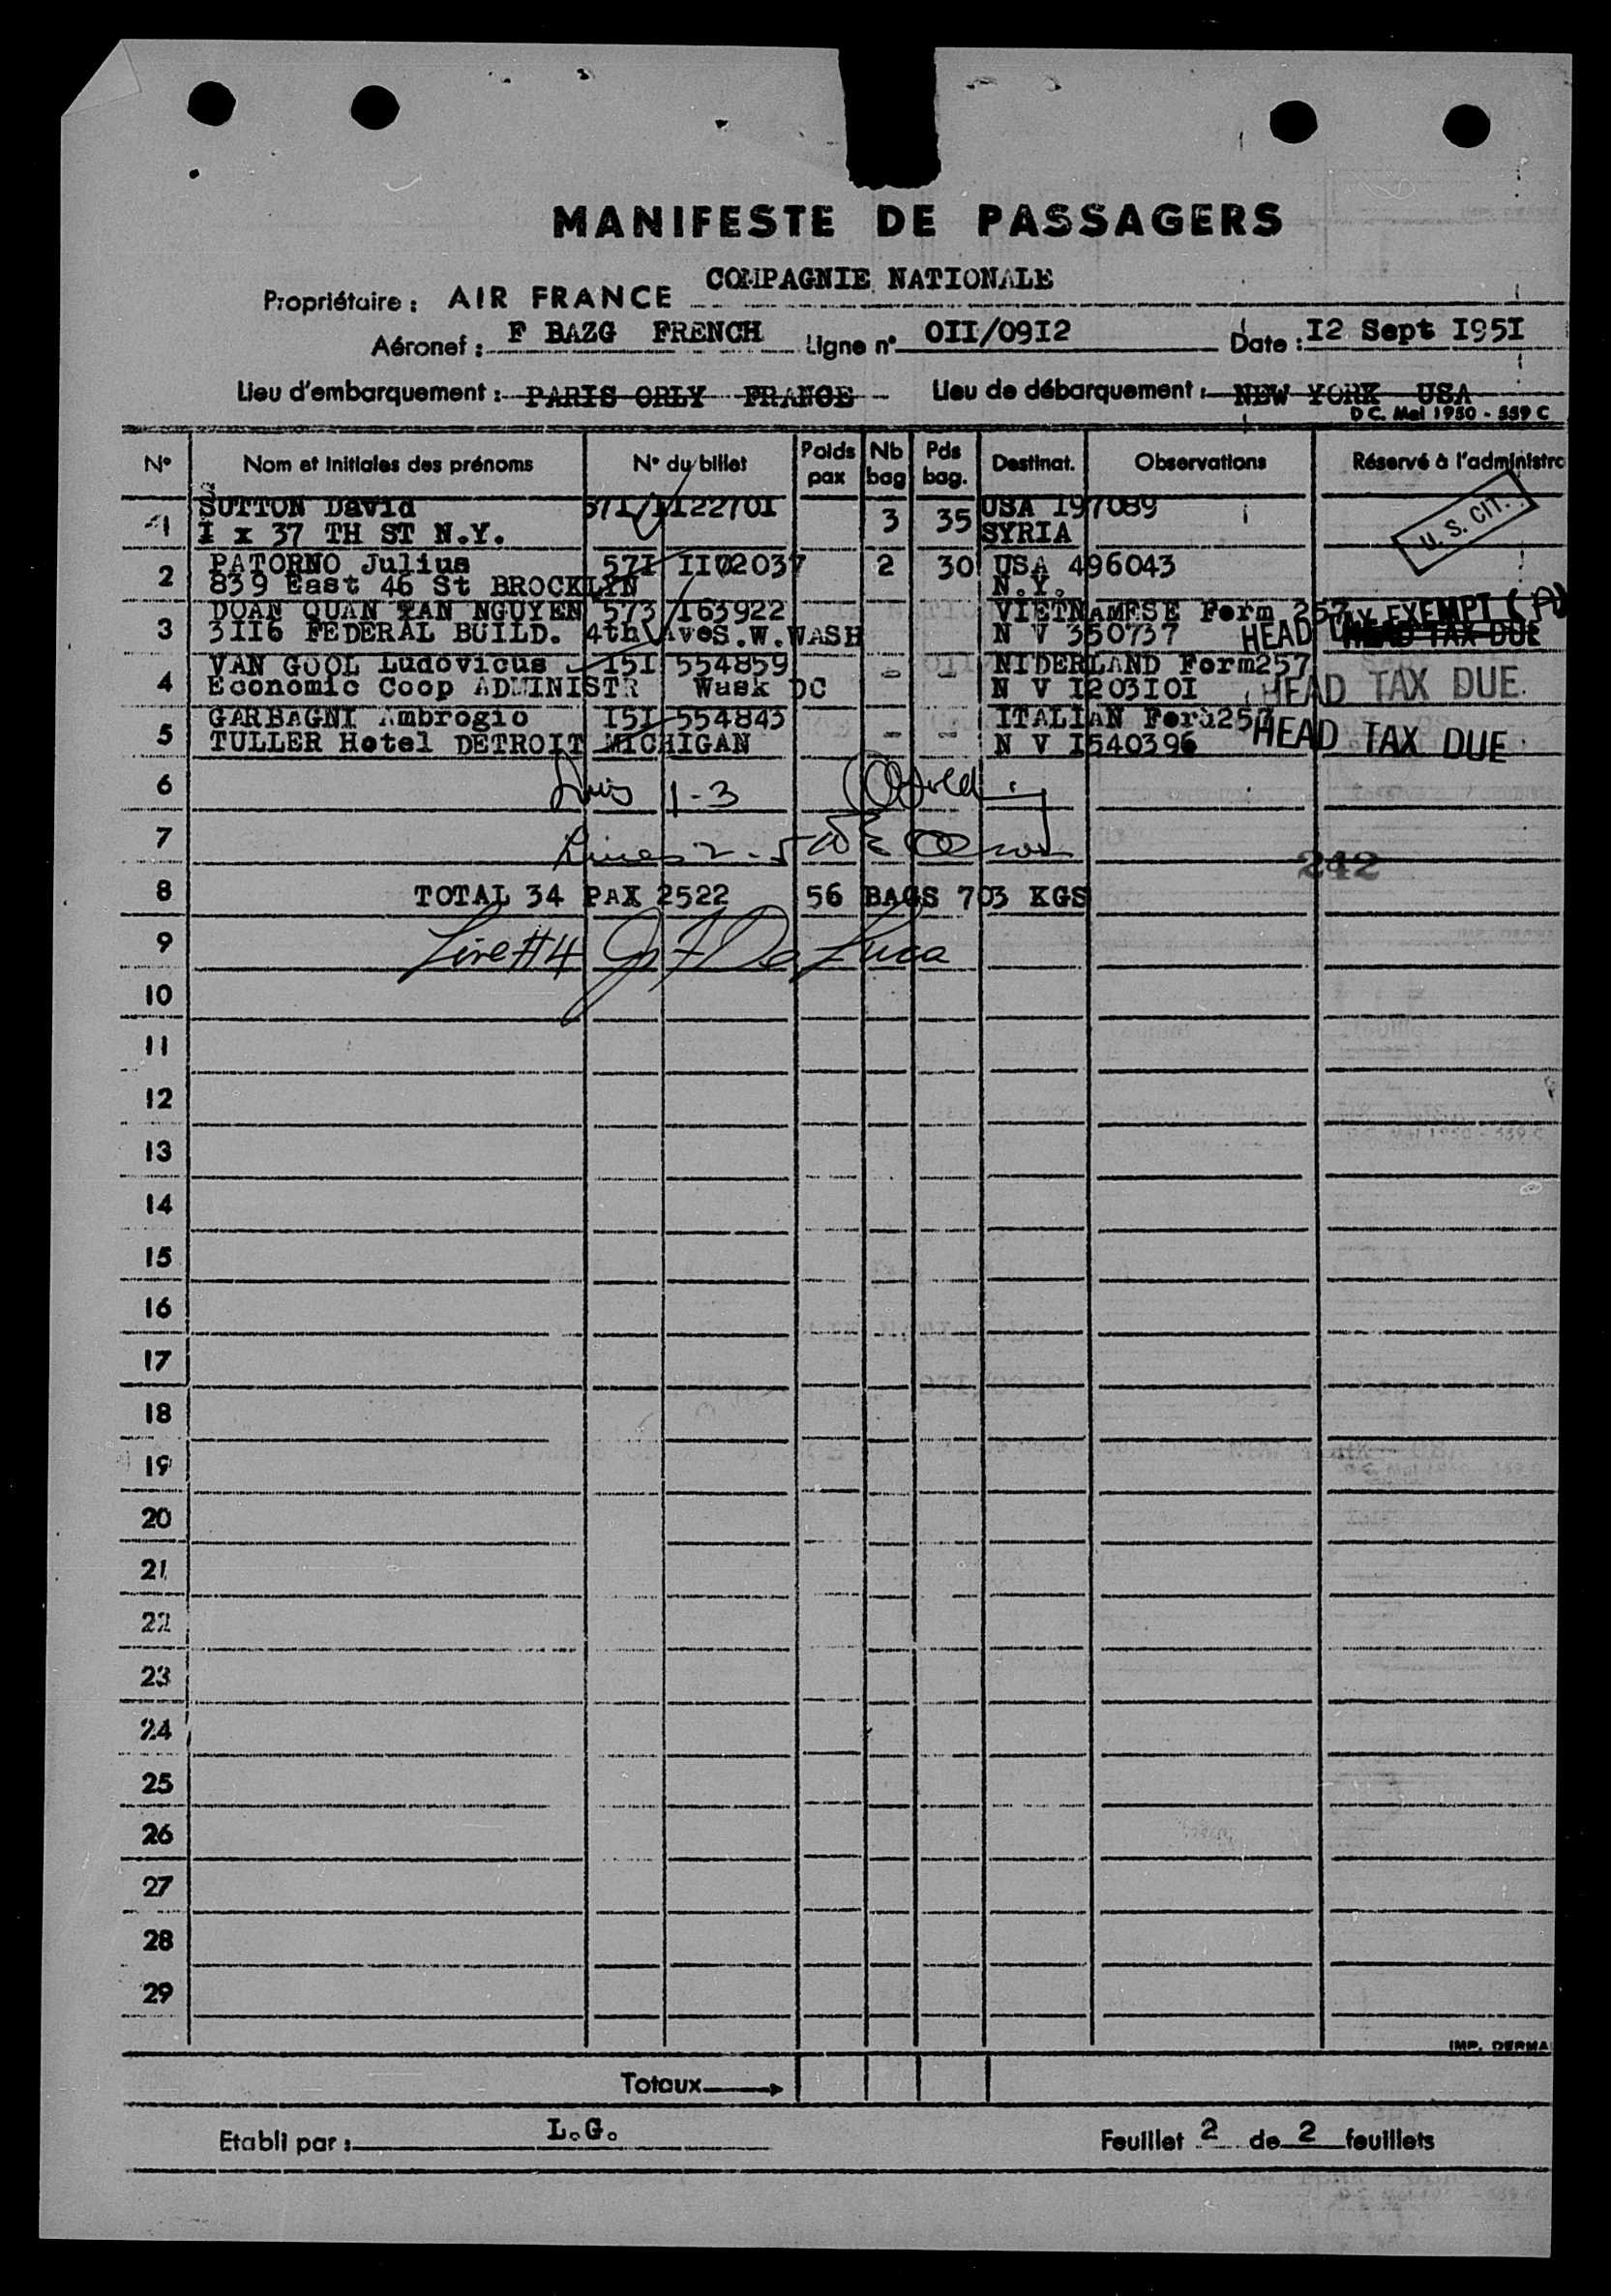 MANIFESTE DE PASSAGERS
Propriétaire : AIR FRANCE COMPAGNIE NATIONALE
Aéronef : F BAZG FRENCH Ligne n° OII/09I2 Date : I2 Sept I95I
Lieu d'embarquement : PARIS ORLY FRANCE Lieu de débarquement : NEW YORK USA
D C. Mel 1950 - 559 C
N° Nom et initiales des prénoms N° du billet Poids pax Nb bag Pds bag. Destinat. Observations Réservé à l'administra
1 SUTTON David 57I/II2270I 3 35 USA I97089 U. S. CIT.
I x 37 TH ST N.Y. SYRIA
2 PATORNO Julius 57I II02037 2 30 USA 496043
839 East 46 St BROCKLYN N.Y.
3 DOAN QUAN TAN NGUYEN 573 163922 VIETNAMESE Form 257 HEAD TAX EXEMPT (A)
3II6 FEDERAL BUILD. 4th AveS.W.WASH N V 350737 HEAD TAX DUE
4 VAN GOOL Ludovicus I5I 554859 - - NIDERLAND Form257
Economic Coop ADMINISTR Wask DC N V I203I0I HEAD TAX DUE.
5 GARBAGNI Ambrogio I5I 554843 - - ITALIAN Form257
TULLER Hotel DETROIT MICHIGAN N V I540396 HEAD TAX DUE.
6 1-3
7 Lines 2-5
242
8 TOTAL 34 PAX 2522 56 BAGS 703 KGS
9 Line #4 De Luca
10
11
12
13
14
15
16
17
18
19
20
21
22
23
24
25
26
27
28
29
IMP. DERMA
Totaux
Etabli par : L.G. Feuillet 2 de 2 feuillets